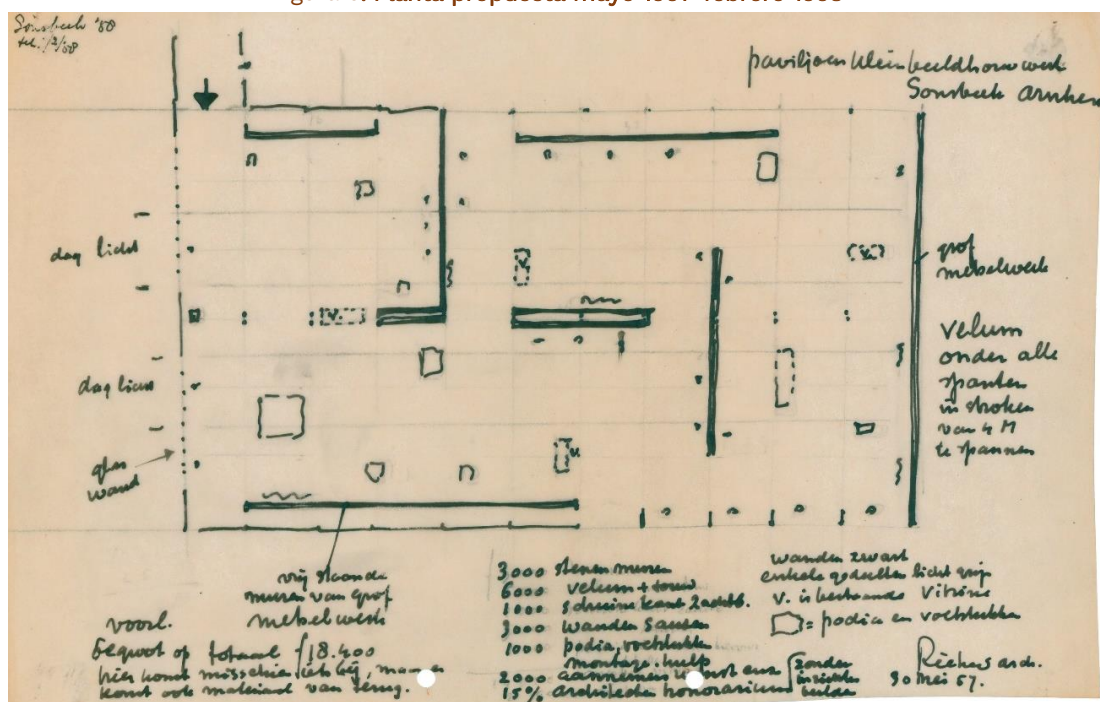 Planta propuesta mayo 1957-febrero 1958
Sonsbeek '58
paviljoen kleinbeeldhouwwerk
Sonsbeek Arnhem
dag licht
dag licht
glas
wand
grof
metselwerk
velum
onder alle
spanten
in stroken
van 4 M
te spannen
vrij staande
muren van grof
metselwerk
voorl.
begroot op totaal f 18.400
hier komt misschien iets bij, maar er
komt ook materiaal van terug.
3000 stenen muren
6000 velum + touw
1000
3000 wanden sausen
1000 podia, voetstukken
montage. hulp
2000 aannemers winst enz
15% architecten honorarium
zonder
beelden
wanden zwart
enkele gedeelten licht grijs
v. is bestaande vitrine
= podia en voetstukken
Rietveld arch.
30 mei 57.